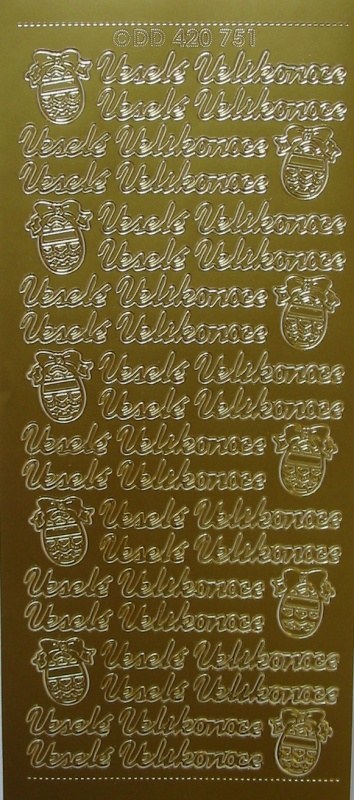 ©DD 420 751
Veselé Velikonoce
Veselé Velikonoce
Veselé Velikonoce
Veselé Velikonoce
Veselé Velikonoce
Veselé Velikonoce
Veselé Velikonoce
Veselé Velikonoce
Veselé Velikonoce
Veselé Velikonoce
Veselé Velikonoce
Veselé Velikonoce
Veselé Velikonoce
Veselé Velikonoce
Veselé Velikonoce
Veselé Velikonoce
Veselé Velikonoce
Veselé Velikonoce
Veselé Velikonoce
Veselé Velikonoce